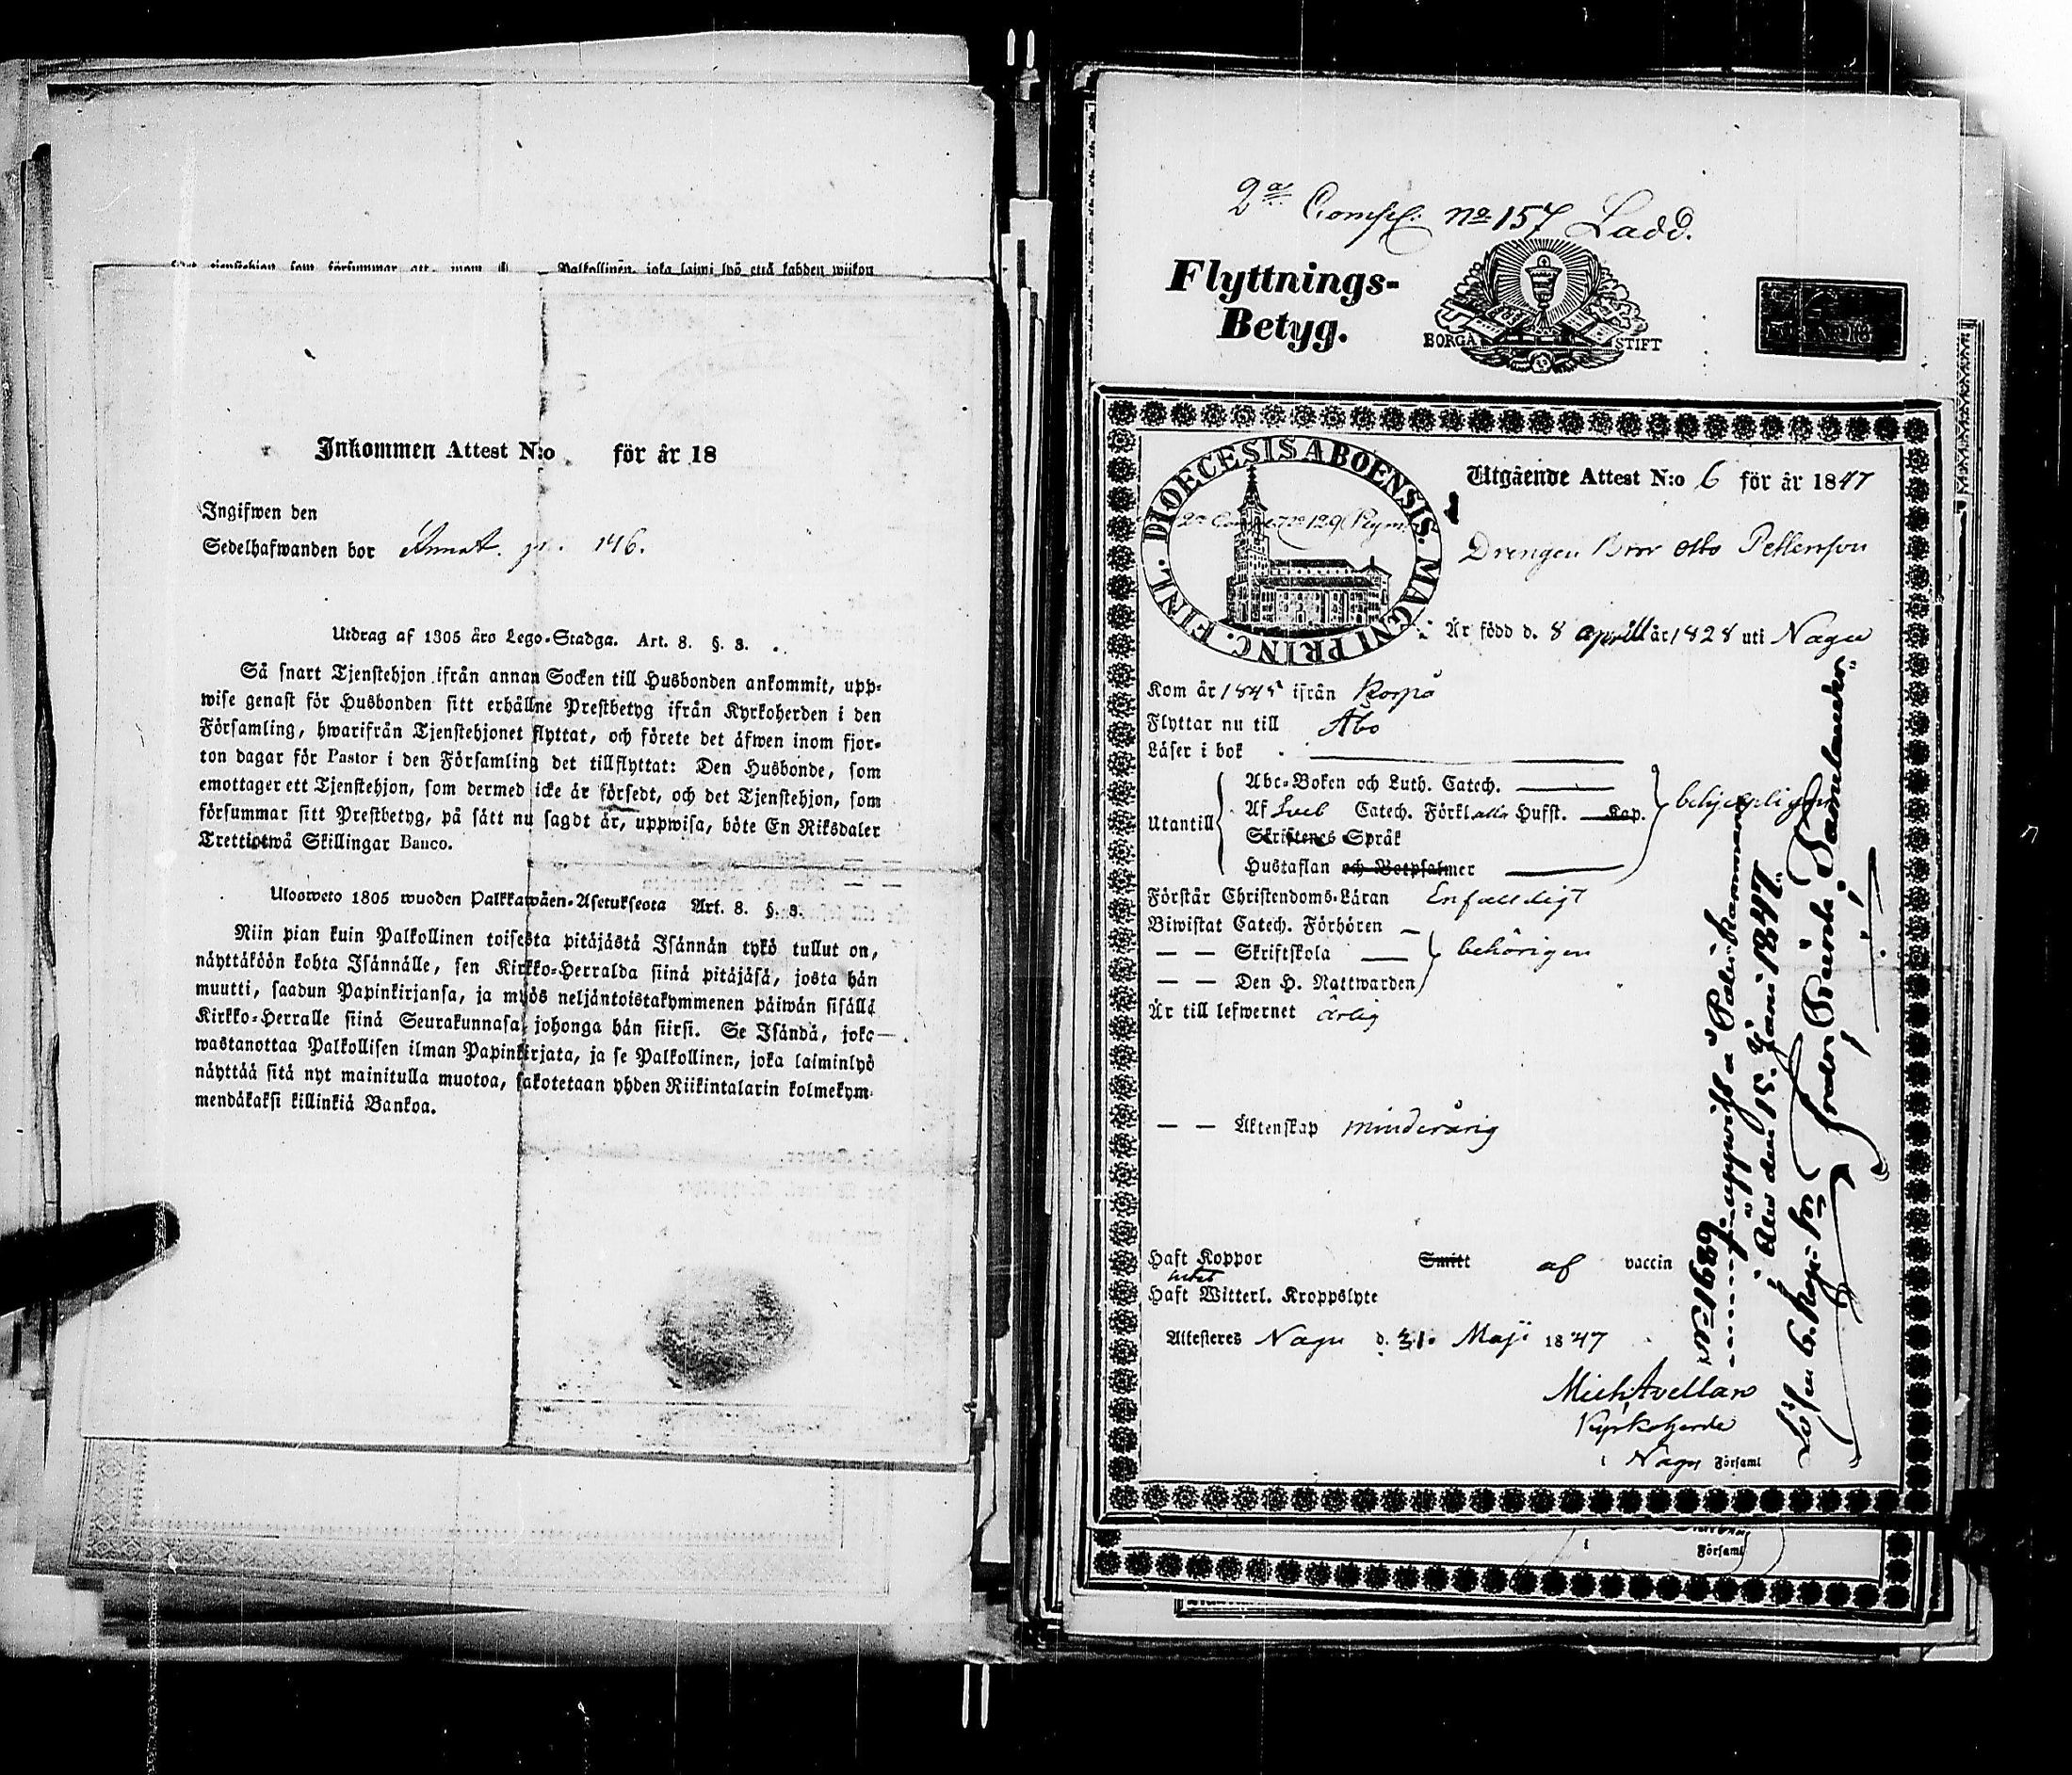 Inkommen Attest N:o för år 18
Ingifwen den
Sedelhafwanden bor Annat. 146.
Utdrag af 1805 års Lego-Stadga. Art. 8. §. 3.
Så snart Tjenstehjon ifrån annan Socken till Husbonden ankommit, upp-
wise genast för Husbonden sitt erhållne Prestbetyg ifrån Kyrkoherden i den
Församling, hwarifrån Tjenstehjonet flyttat, och förete det äfwen inom fjor-
ton dagar för Pastor i den Församling det tillflyttat: Den Husbonde, som
emottager ett Tjenstehjon, som dermed icke är försedt, och det Tjenstehjon, som
försummar sitt Prestbetyg, på sätt nu sagdt är, uppwisa, böte En Riksdaler
Trettiotwå Skillingar Banco.
Ulosweto 1805 wuoden Palkkawäen-Asetuksesta Art. 8. §. 3.
Niin pian kuin Palkollinen toisesta pitäjästä Isännän tykö tullut on,
näyttäköön kohta Isännälle, sen Kirkko-Herralda siinä pitäjäsä, josta hän
muutti, saadun Papinkirjansa, ja myös neljäntoistakymmenen päiwän sisällä
Kirkko-Herralle siinä Seurakunnasa, johonga hän siirsi. Se Isändä, joka
wastanottaa Palkollisen ilman Papinkirjata, ja se Palkollinen, joka laiminlyö
näyttää sitä nyt mainitulla muotoa, sakotetaan yhden Riikintalarin kolmekym-
mendäkaksi killinkiä Bankoa.
2a Compl. No 157 Ladd.
Flyttnings-
Betyg.
BORGÅ STIFT
DIOECESIS ABOENSIS. MAGNI PRINC. FINL.
Utgående Attest N:o 6 för år 1847
Drengen Otto Pettersson
Är född d. 8 aprill år 1828 uti Nagu
Kom år 1845 ifrån Korpo
Flyttar nu till Åbo
Läser i bok
Utantill
Abc-Boken och Luth. Catech.
Af Sveb Catech. Förkl. alla Hufst. Kap.
Skriftenes Språk
Hustaflan och Botpsalmer
Förstår Christendoms-Läran Enfalldigt
Biwistat Catech. Förhören
— — Skriftskola behörigen
— — Den H. Nattwarden
Är till lefwernet ärlig
— — Äktenskap minderårig
Haft Koppor Smitt af vaccin
Haft Witterl. Kroppslyte
Attesteres Nagu d. 31. Maji 1847
Mich Avellan
Kyrkoherde
i Nagu Församl
No 1689 uppwist å Polis kammaren
i Åbo den 15. Juni 1847.
Lösen 6. kop. Sr
i
Församl